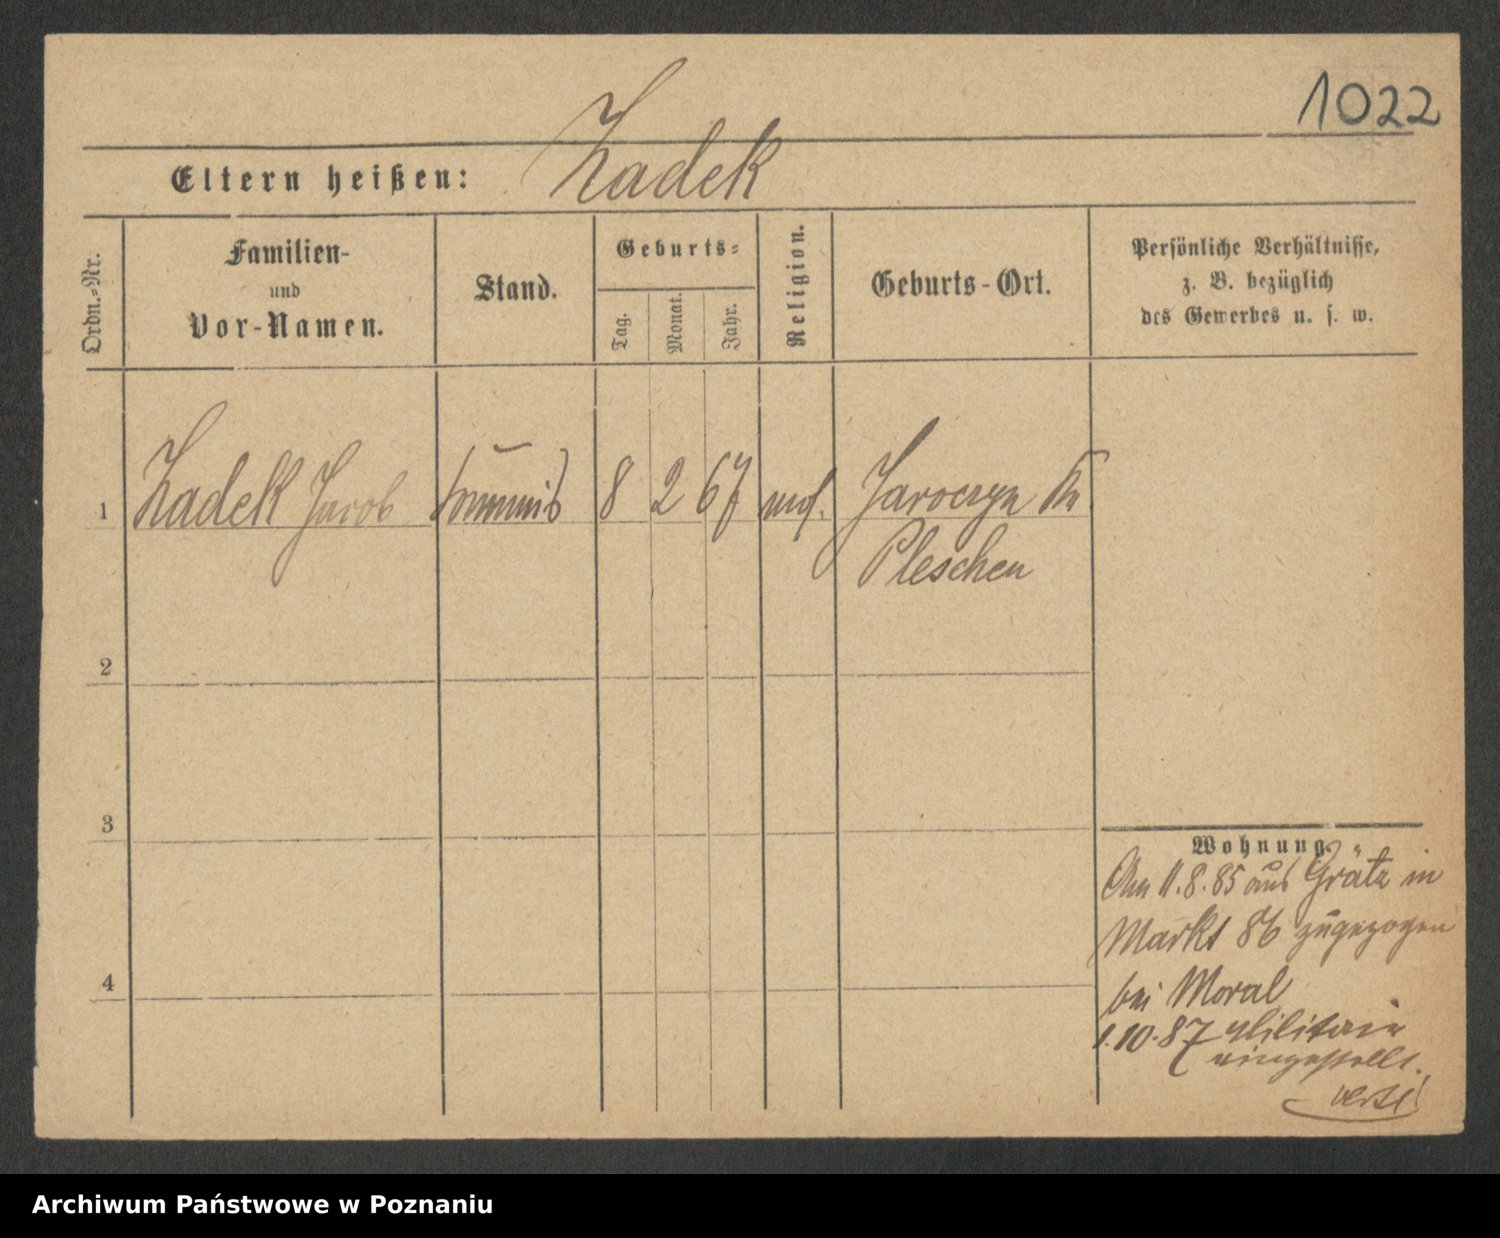 1022
Zadek
Eltern heißen:
Ordn.-Nr.
Familien-
und
Vor-Namen.
Stand.
Geburts-
Tag.
Monat.
Jahr.
Religion.
Geburts-Ort.
Persönliche Verhältnisse,
z. B. bezüglich
des Gewerbes u. s. w.
1 Zadek Jacob Commis 8 2 67 mos. Jaroczyn Kr
Pleschen
2
3
4
Wohnung.
Am 11.8.85 aus Grätz in
Markt 86 zugezogen
bei Moral
1.10.87 Militair
eingestellt.
verte!
Archiwum Państwowe w Poznaniu